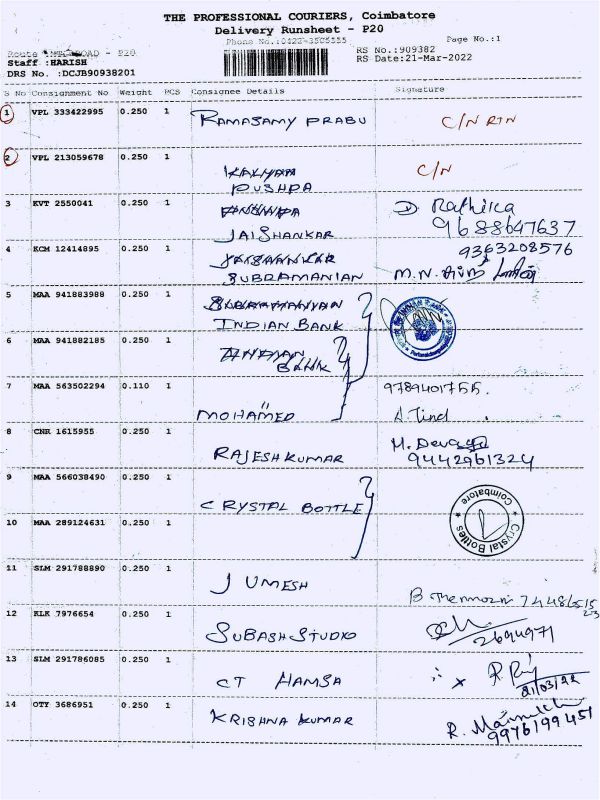 THE PROFESSIONAL COURIERS, Coimbatore
Delivery Runsheet - P20
Page No.:1
Route : - P20
RS No.:909382
Staff :HARISH
RS Date:21-Mar-2022
DRS No. :DCJB90938201
S No Consignment No Weight PCS Consignee Details Signature
1 VPL 333422995 0.250 1 RAMASAMY PRABU C/N RTN
2 VPL 213059678 0.250 1 KALYAN C/N
PUSHPA
3 KVT 2550041 0.250 1 PUSHPA D Rathika
JAISHANKAR 9688647637
4 KCM 12414895 0.250 1 JAISHANKAR 9363208576
SUBRAMANIAN M.N.
5 MAA 941883988 0.250 1 SUBRAMANIAN
INDIAN BANK
6 MAA 941882185 0.250 1 INDIAN
BANK
7 MAA 563502294 0.110 1 9789401755.
MOHAMED
8 CNR 1615955 0.250 1 RAJESH KUMAR M.
9442961324
9 MAA 566038490 0.250 1 CRYSTAL BOTTLE
Crystal Bottles * Coimbatore *
10 MAA 289124631 0.250 1
11 SLM 291788890 0.250 1 J UMESH B
12 KLK 7976654 0.250 1 SUBASH STUDIO
2694971
13 SLM 291786085 0.250 1 CT HAMSA x
21/03/22
14 OTY 3686951 0.250 1 KRISHNA KUMAR R.
9976199451